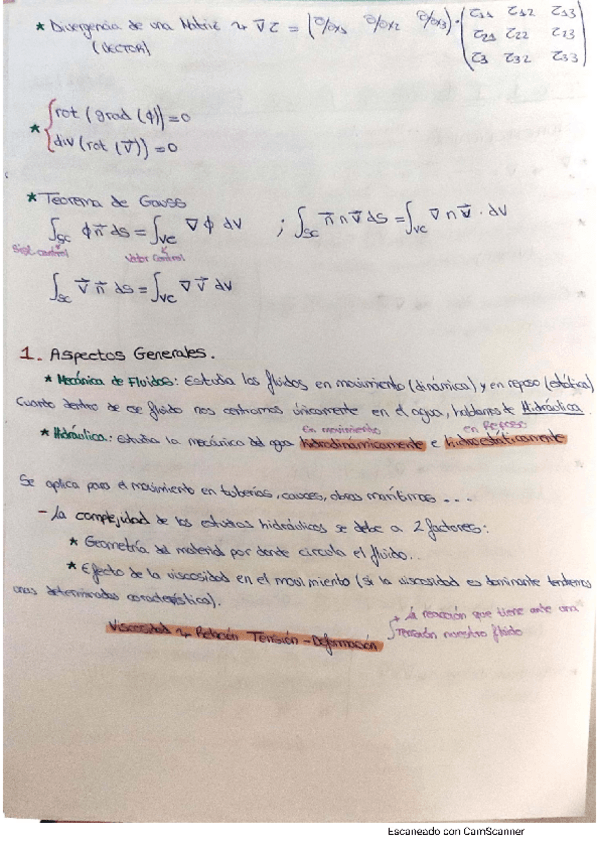 * Divergencia de una Matriz ~> ∇τ = (∂/∂x1 ∂/∂x2 ∂/∂x3) · (τ11 τ12 τ13
(VECTOR) τ21 τ22 τ23
τ3 τ32 τ33)
* { rot (grad (ϕ)) = 0
div (rot (v⃗)) = 0
* Teorema de Gauss
∫SC ϕ n⃗ ds = ∫VC ∇ϕ dV ; ∫SC n⃗ ∧ v⃗ ds = ∫VC ∇ ∧ v⃗ · dV
∫SC v⃗ n⃗ ds = ∫VC ∇ v⃗ dV
1. Aspectos Generales.
* Mecánica de Fluidos: Estudia los fluidos en movimiento (dinámica) y en reposo (estática)
Cuando dentro de ese fluido nos centramos únicamente en el agua, hablamos de Hidráulica.
En movimiento en Reposo
* Hidráulica: Estudia la mecánica del agua hidrodinámicamente e hidrostáticamente
Se aplica para el movimiento en tuberías, cauces, obras marítimas ...
- La complejidad de los estudios hidráulicos se debe a 2 factores:
* Geometría del material por donde circula el fluido.
* Efecto de la viscosidad en el movimiento (si la viscosidad es dominante tendremos
unas determinadas características).
la reacción que tiene ante una
Viscosidad ~> Relación Tensión - Deformación tensión nuestro fluido
Escaneado con CamScanner